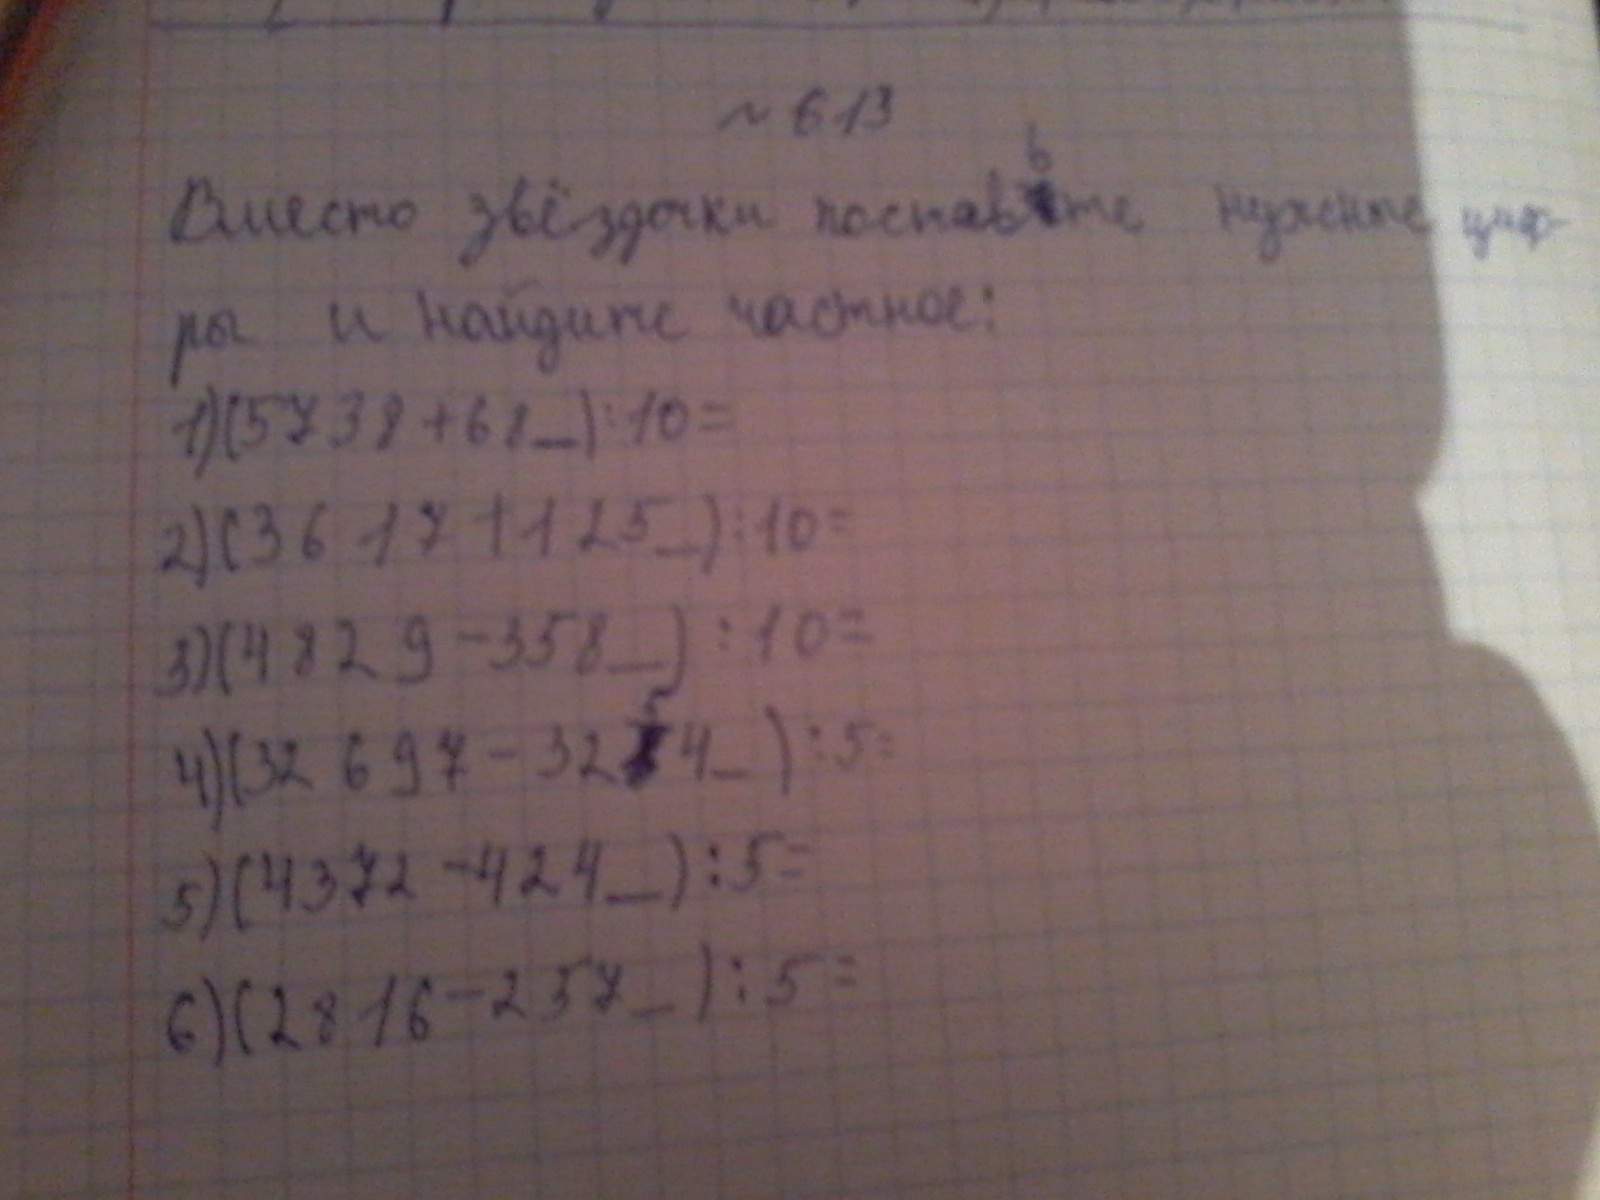 ~ 613
Вместо звёздочки поставьте нужные циф-
ры и найдите частное:
1)(5738+68_):10=
2)(3617+125_):10=
3)(4829-358_):10=
4)(32697-3254_):5=
5)(4372-424_):5=
6)(2816-257_):5=